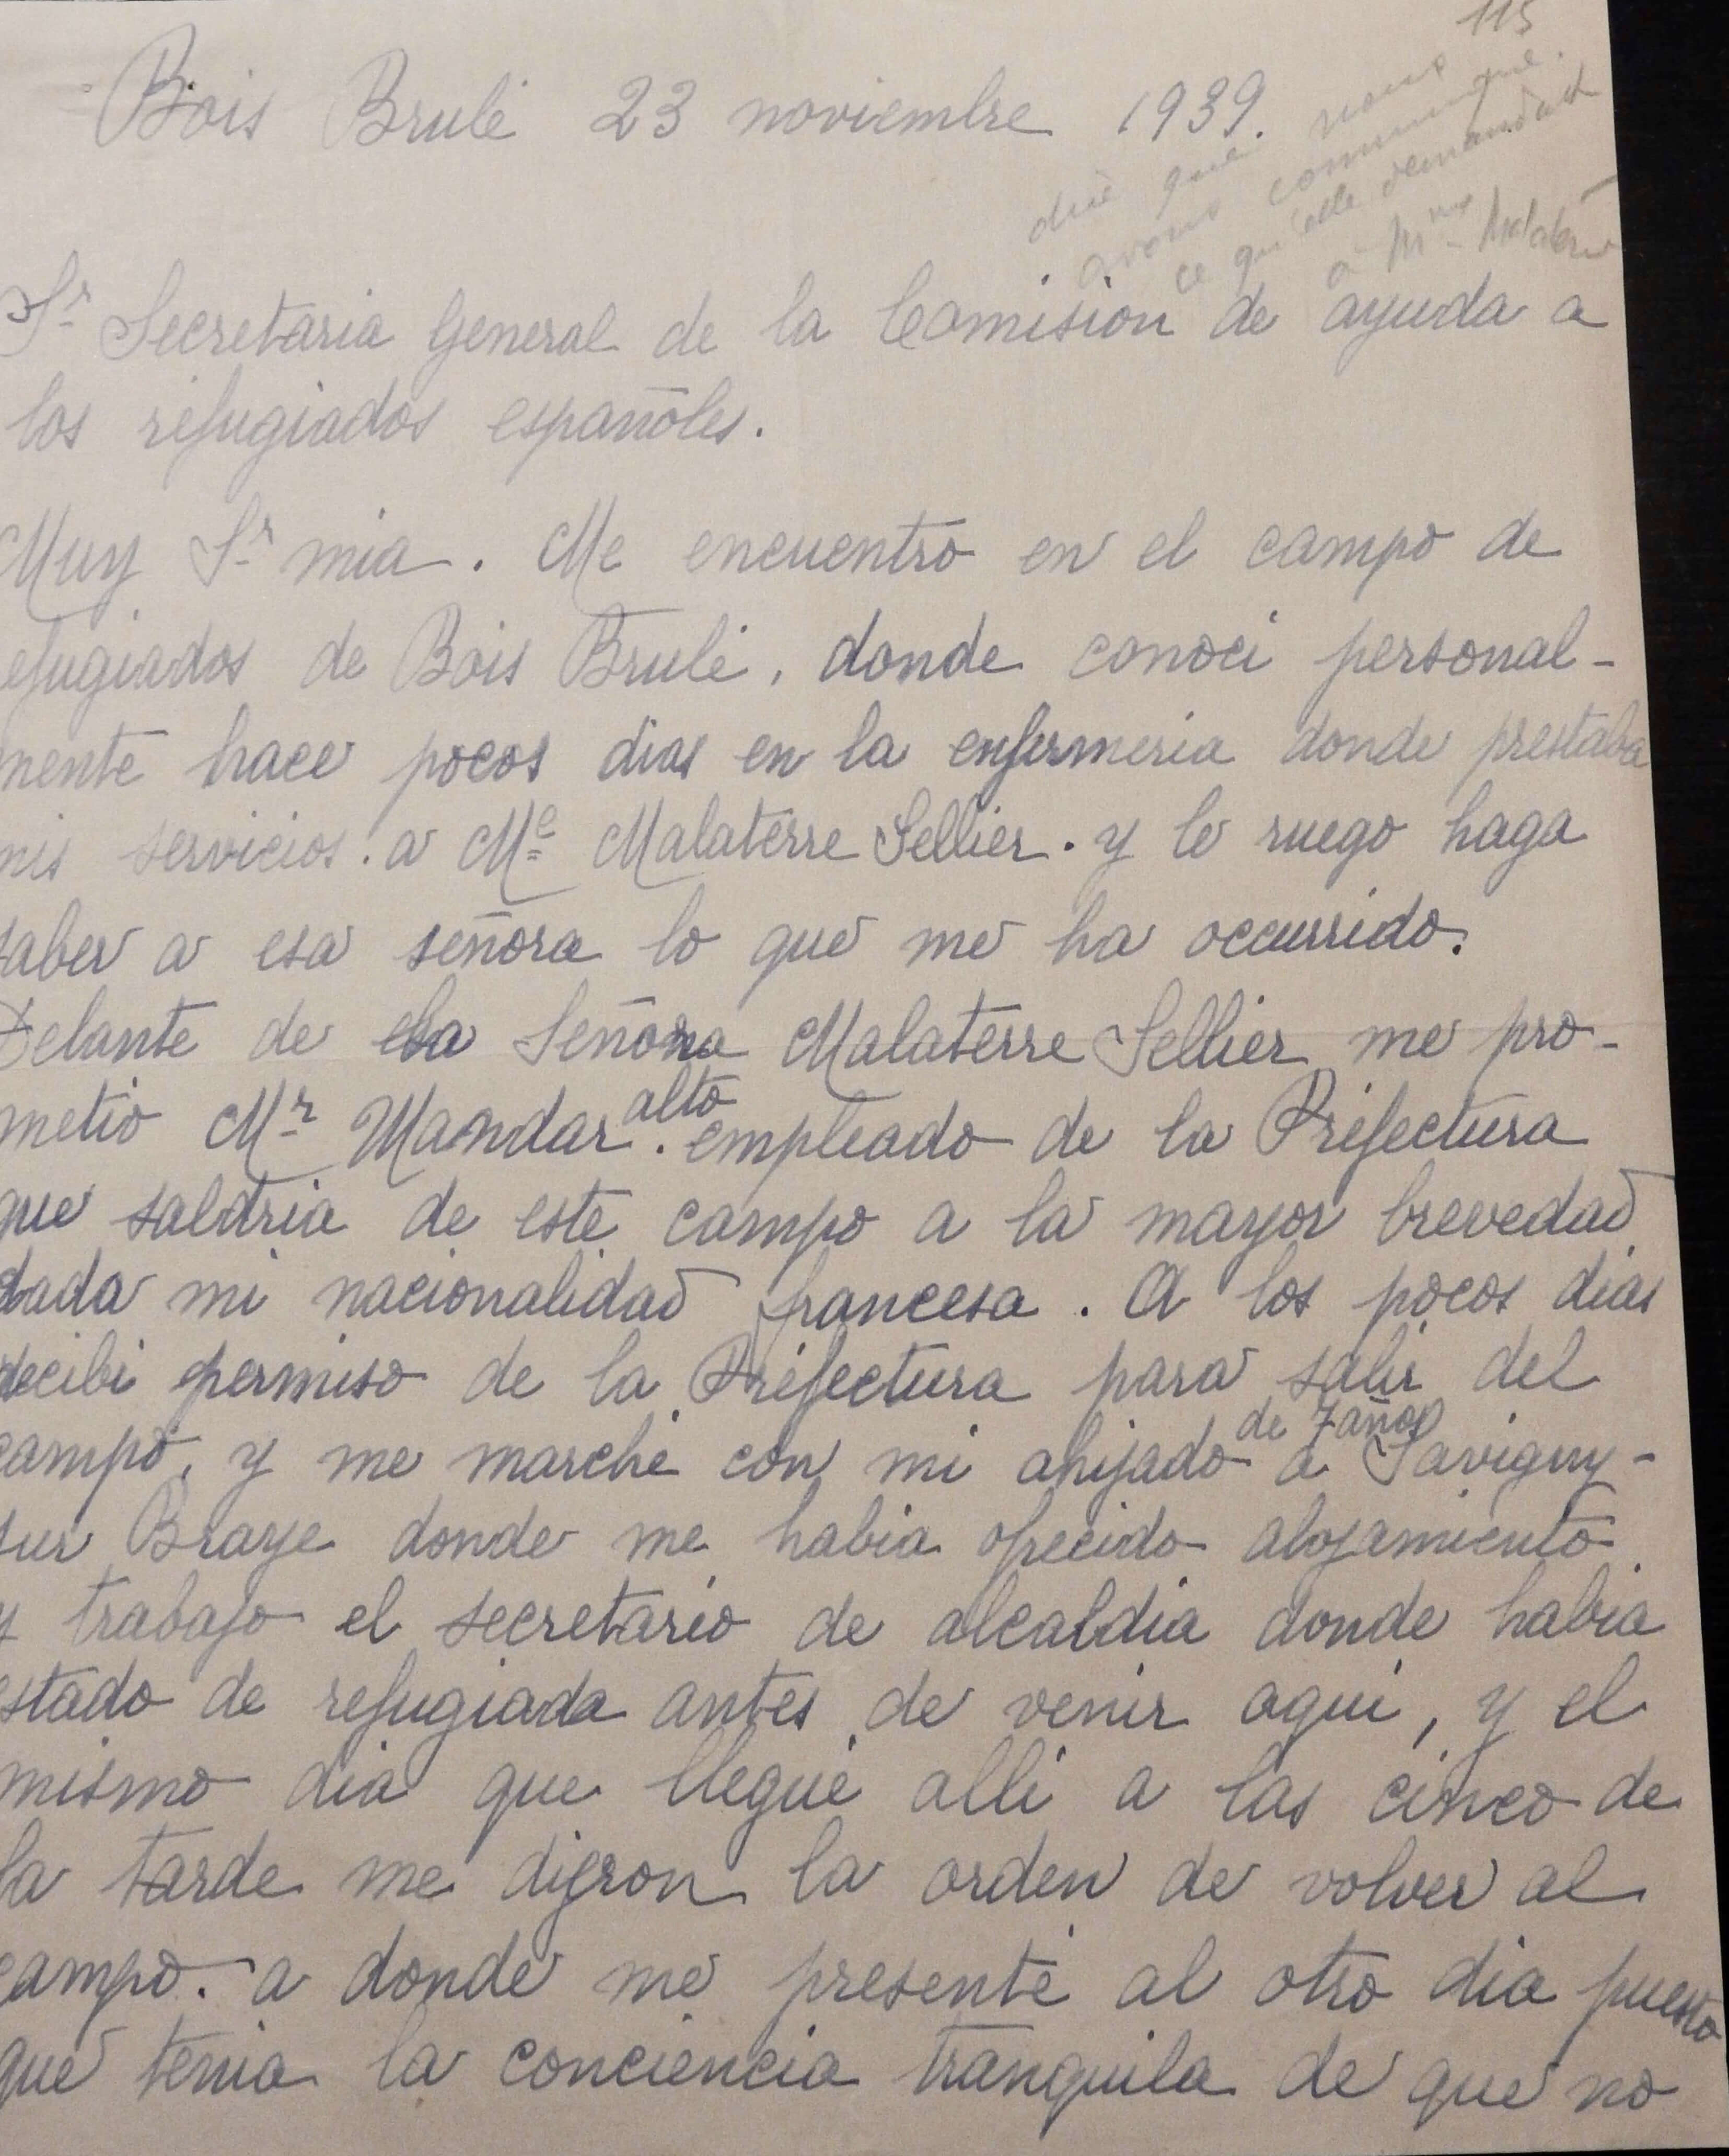 115
dire que nous
avons communiqué
ce qu'elle demandait
à Mme Malaterre
Bois Brulé 23 noviembre 1939.
Sr Secretaria General de la Comisión de ayuda a
los refugiados españoles.
Muy Sr mia. Me encuentro en el campo de
efugiados de Bois Brulé, donde conocí personal-
mente hace pocos dias en la enfermeria donde prestaba
mis servicios. a Me Malaterre Sellier. y le ruego haga
saber a esa señora lo que me ha occurrido.
Delante de esa Señora Malaterre Sellier me pro-
metió Mr Mandar. alto empleado de la Préfectura
que saldria de este campo a la mayor brevedad
dada mi nacionalidad francesa. A los pocos dias
recibi permiso de la Préfectura para salir del
campo, y me marché con mi ahijado de 7 años a Savigny-
sur Braye donde me habia ofrecido alojamiento
y trabajo el secretario de alcaldia donde habia
estado de refugiada antes de venir aqui, y el
mismo dia que llegué alli a las cinco de
la tarde me dijeron la orden de volver al
campo. a donde me presenté al otro dia puesto
que tenia la conciencia tranquila de que no